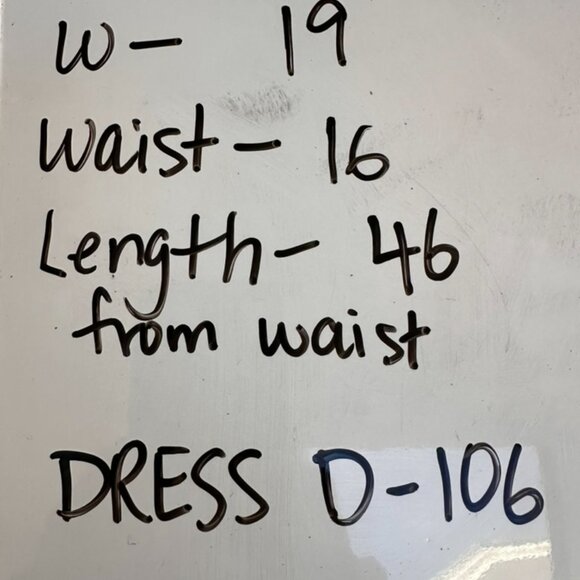 W- 19
Waist- 16
Length- 46
from waist
DRESS D-106